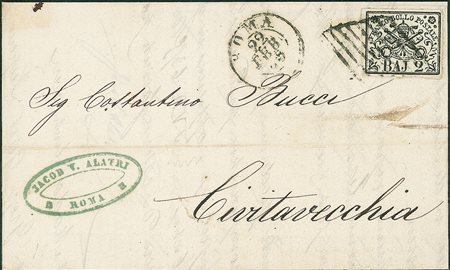 ROMA
22
FEB
FRANCO BOLLO POSTALE
BAJ 2
Sig Costantino Bucci
JACOB V. ALATRI
ROMA
Civitavecchia